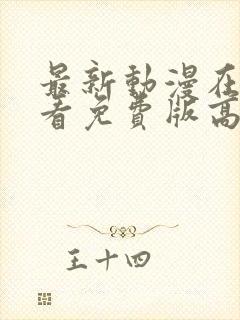 最新動漫在
看免費版高
王十四